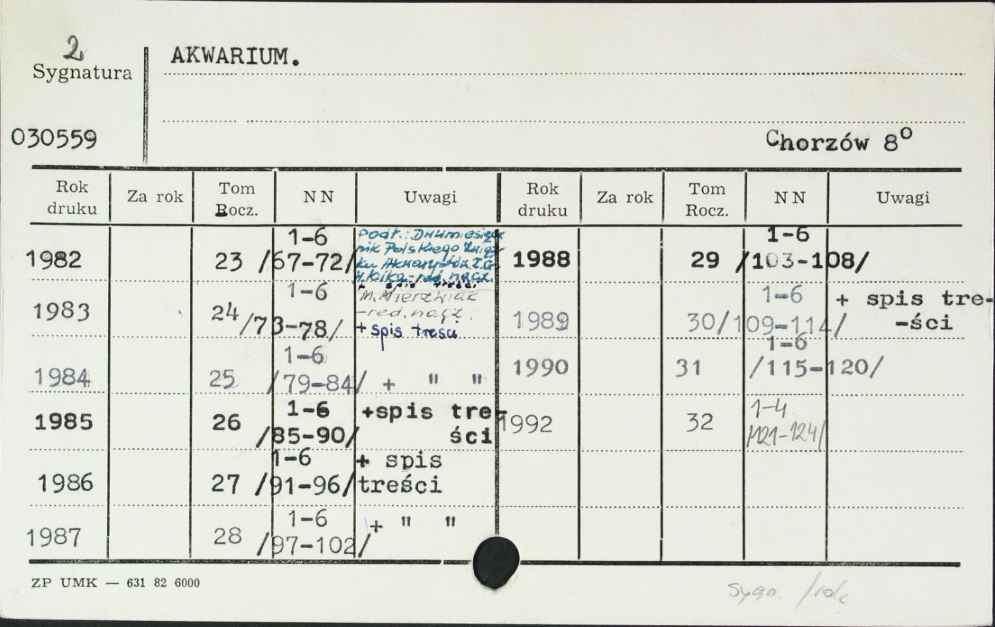 2
Sygnatura
AKWARIUM.
030559
Chorzów 8º
Rok druku Za rok Tom Rocz. NN Uwagi Rok druku Za rok Tom Rocz. NN Uwagi
1982 23 1-6 /67-72/
Podt.: Dwumiesięcz
nik Polskiego Związ
ku Akwarystów Z.G
red. nacz.
+ spis treści
1983 24 1-6 /73-78/
M. Mierzwiak
-red. nacz.
+spis treści
1984 25 1-6 /79-84/ + " "
1985 26 1-6 /85-90/ +spis tre-
ści
1986 27 1-6 /91-96/ + spis
treści
1987 28 1-6 /97-102/ + " "
1988 29 1-6 /103-108/
1989 30 1-6 /109-114/ + spis tre-
-ści
1990 31 1-6 /115-120/
1992 32 1-4 /121-124/
ZP UMK — 631 82 6000
Sygn.